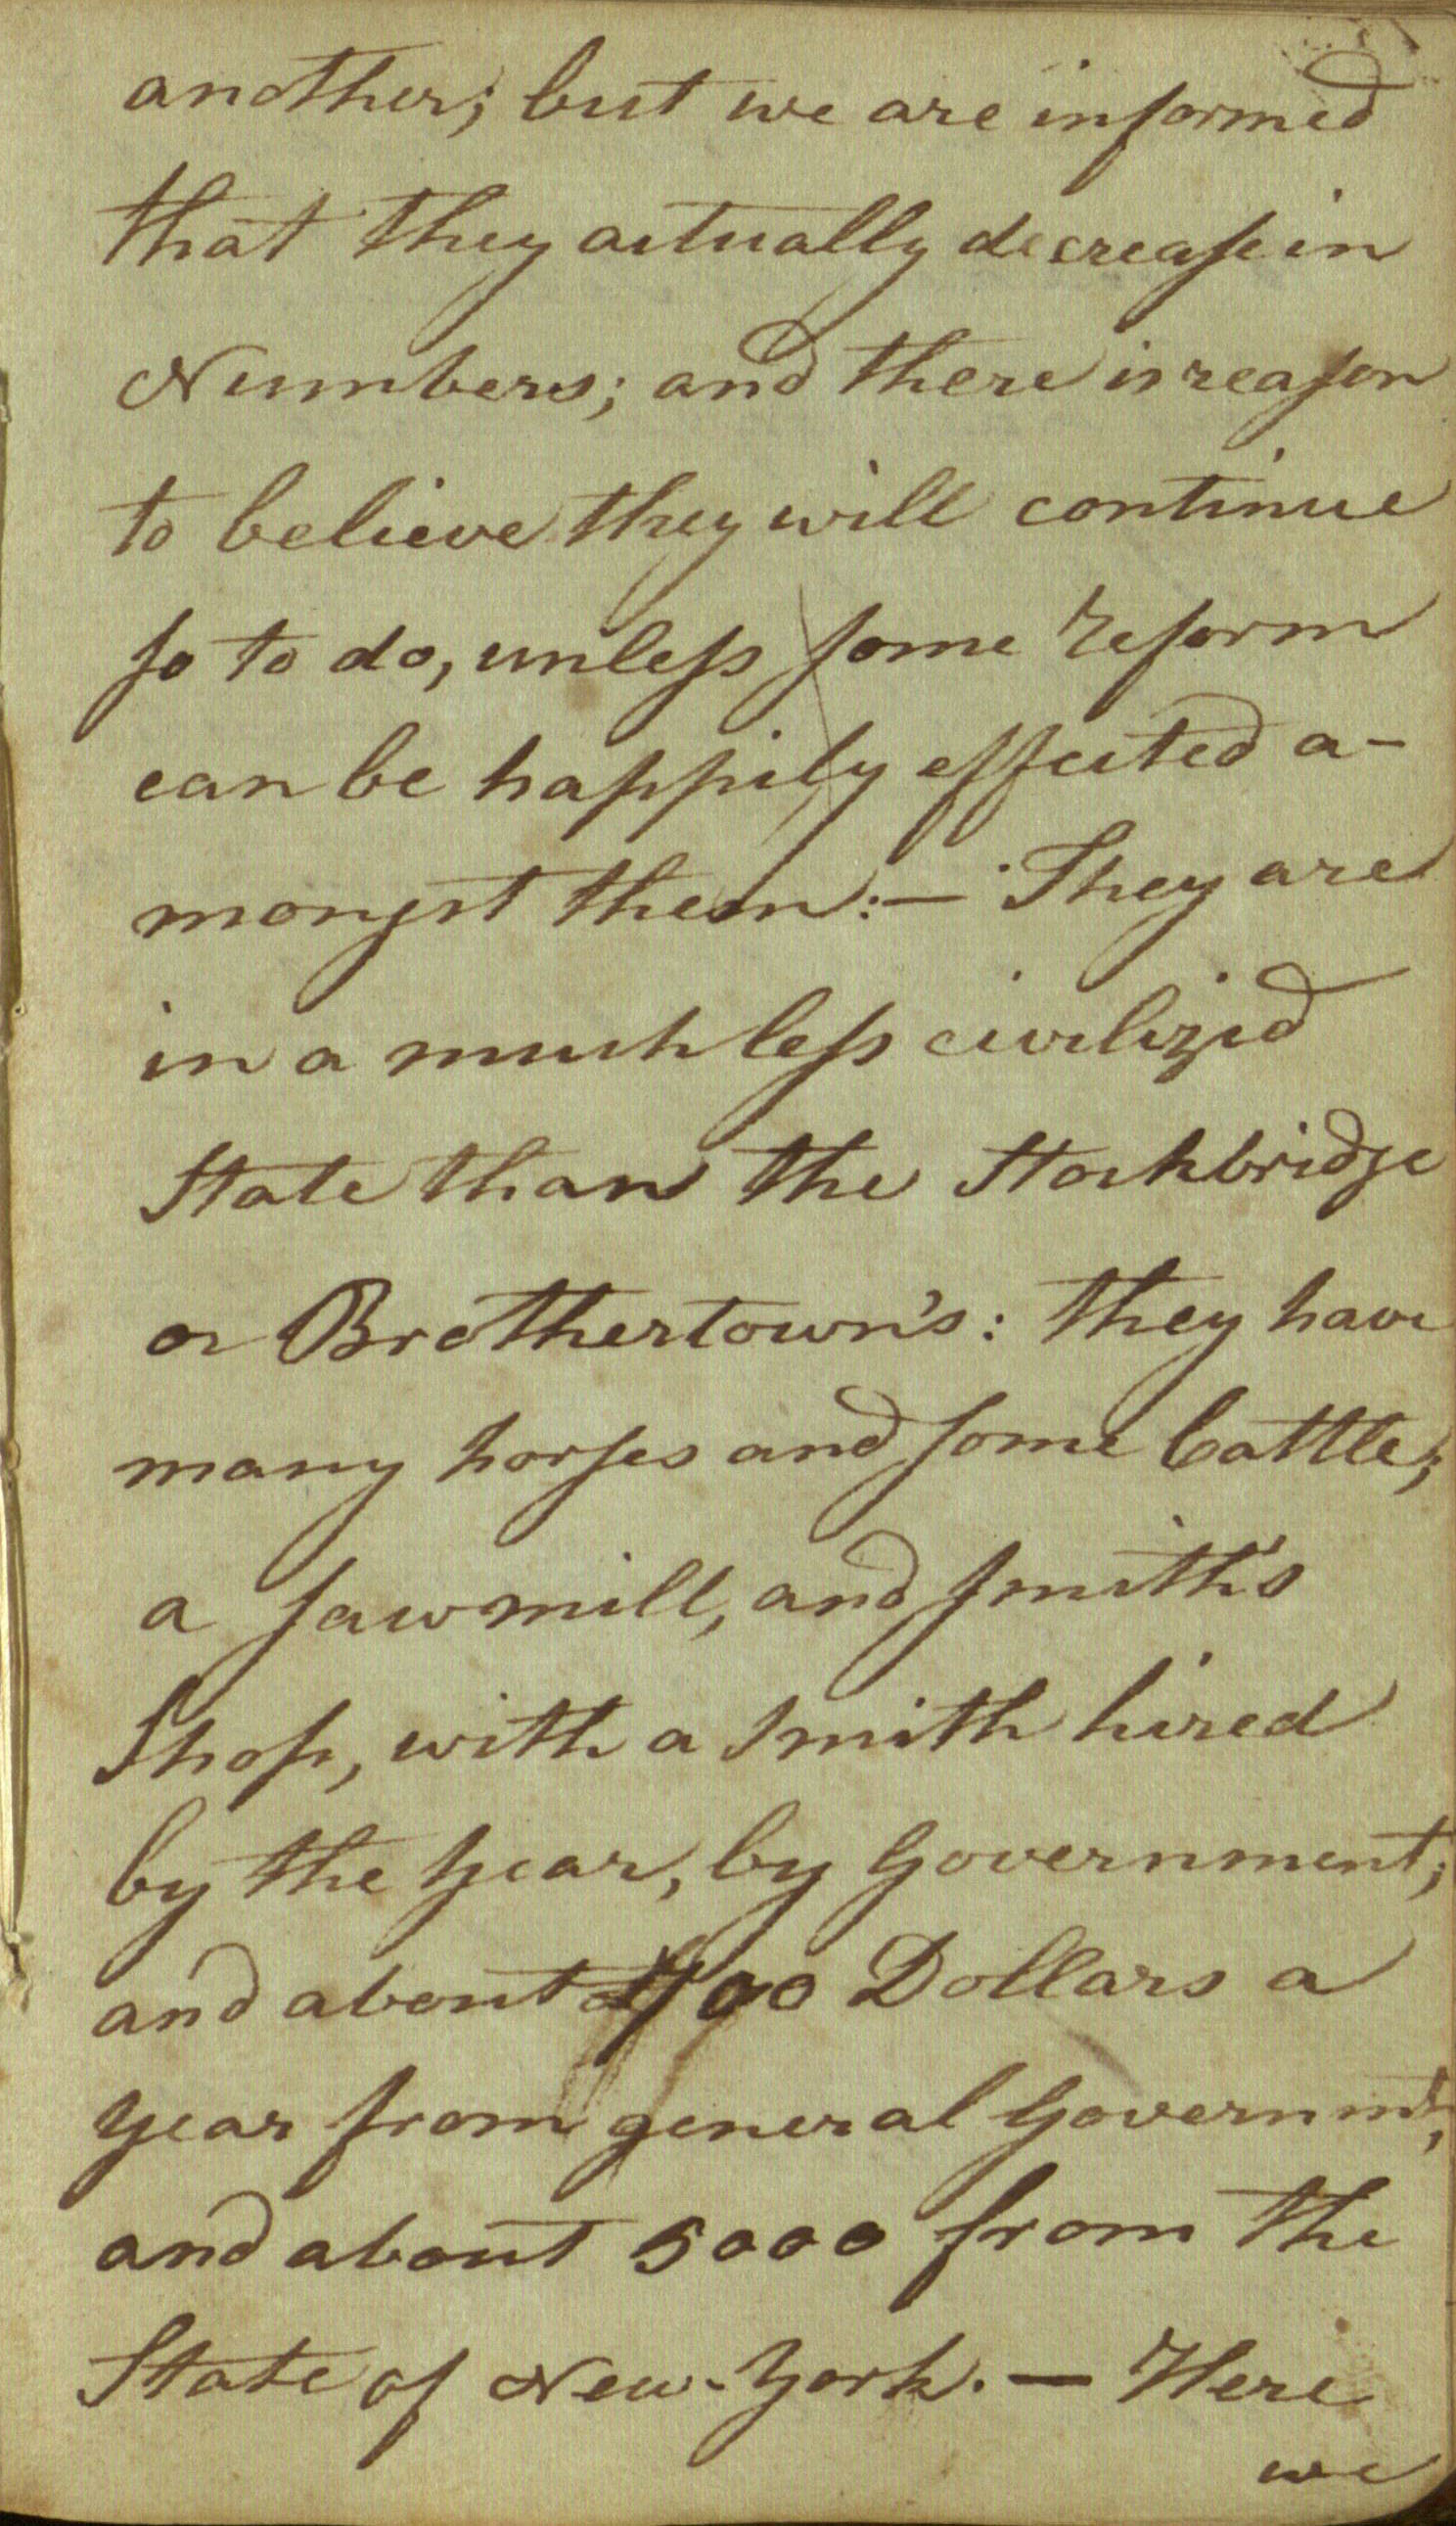 another; but we are informed
that they actually decrease in
Numbers; and there is reason
to believe they will continue
so to do, unless some reform
can be happily effected a-
mongst them:— They are
in a much less civilized
State than the Stockbridge
or Brothertown's: they have
many horses and some Cattle;
a sawmill, and smith's
Shop, with a smith hired
by the year, by Government;
and about Dollars a
year from general Governmt,
and about 5000 from the
State of New-York.— Here
we